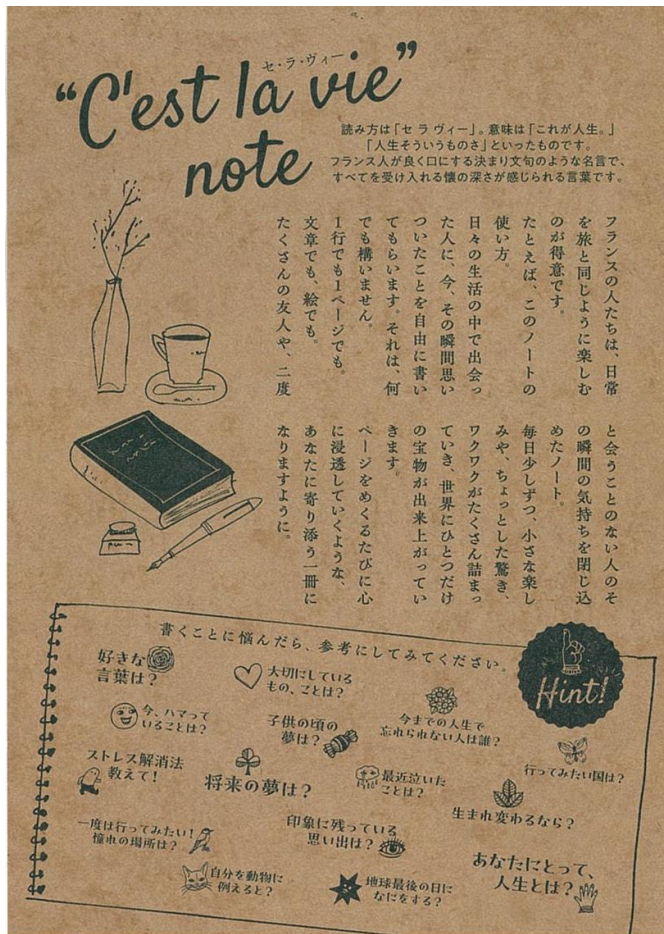 セ・ラ・ヴィー
“C'est la vie”
note
読み方は「セ ラ ヴィー」。意味は「これが人生。」
「人生そういうものさ」といったものです。
フランス人が良く口にする決まり文句のような名言で、
すべてを受け入れる懐の深さが感じられる言葉です。
フランスの人たちは、日常
を旅と同じように楽しむ
のが得意です。
たとえば、このノートの
使い方。
日々の生活の中で出会っ
た人に、今、その瞬間思い
ついたことを自由に書い
てもらいます。それは、何
でも構いません。
1行でも1ページでも。
文章でも、絵でも。
たくさんの友人や、二度
と会うことのない人のそ
の瞬間の気持ちを閉じ込
めたノート。
毎日少しずつ、小さな楽し
みや、ちょっとした驚き、
ワクワクがたくさん詰まっ
ていき、世界にひとつだけ
の宝物が出来上がってい
きます。
ページをめくるたびに心
に浸透していくような、
あなたに寄り添う一冊に
なりますように。
書くことに悩んだら、参考にしてみてください。
Hint!
好きな
言葉は?
大切にしている
もの、ことは?
今、ハマって
いることは?
子供の頃の
夢は?
今までの人生で
忘れられない人は誰?
ストレス解消法
教えて!
将来の夢は?
最近泣いた
ことは?
行ってみたい国は?
生まれ変わるなら?
一度は行ってみたい!
憧れの場所は?
印象に残っている
思い出は?
あなたにとって、
人生とは?
自分を動物に
例えると?
地球最後の日に
なにをする?